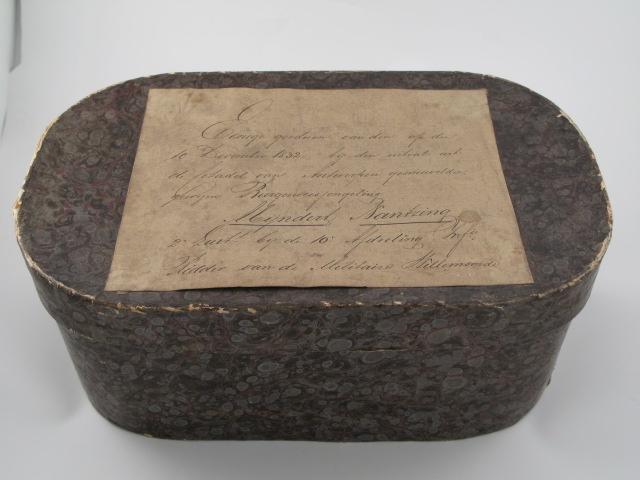 Eenige goederen van den op den
10 December 1832 bij den uitval uit
de citadel van Antwerpen gesneuvelde
Burgerweesjongeling
Meyndert Nantzing
2e Luit. bij de 10e Afdeeling Infe
Ridder van de Militaire Willemsorde